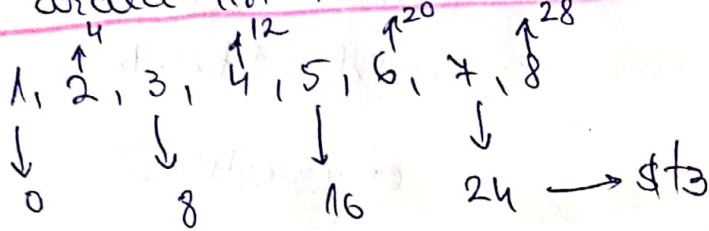 4 12 20 28
1, 2, 3, 4, 5, 6, 7, 8
0 8 16 24 → $t3